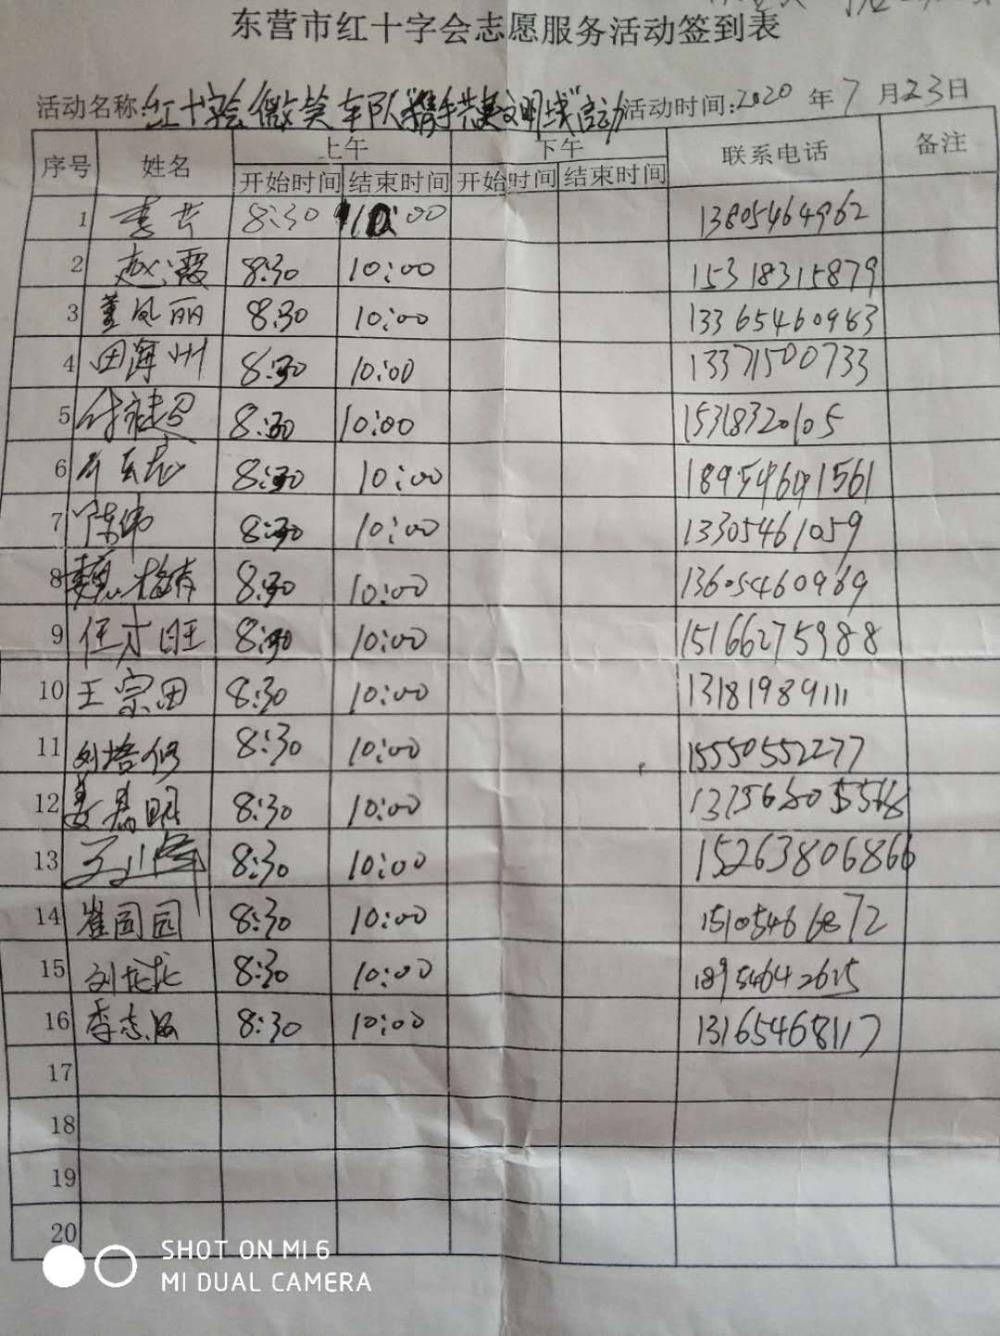 东营市红十字会志愿服务活动签到表
活动名称:红十字会微笑车队"携手共建文明城"启动 活动时间:2020 年 7 月 23 日
序号 姓名 上午 下午 联系电话 备注
开始时间 结束时间 开始时间 结束时间
1 李 8:30 10:00 13805464962
2 赵霞 8:30 10:00 15318315879
3 董凤丽 8:30 10:00 13365460983
4 田海州 8:30 10:00 13371500733
5 8:30 10:00 15318320105
6 8:30 10:00 18954641561
7 陈伟 8:30 10:00 13305461059
8 魏梅青 8:30 10:00 13605460969
9 任才旺 8:30 10:00 15166275988
10 王宗田 8:30 10:00 13181989111
11 刘培修 8:30 10:00 15550552277
12 姜磊明 8:30 10:00
13 8:30 10:00 15263806866
14 崔园园 8:30 10:00 15105466872
15 刘龙龙 8:30 10:00 18954642615
16 李志 8:30 10:00 13165468117
17
18
19
20
SHOT ON MI 6
MI DUAL CAMERA